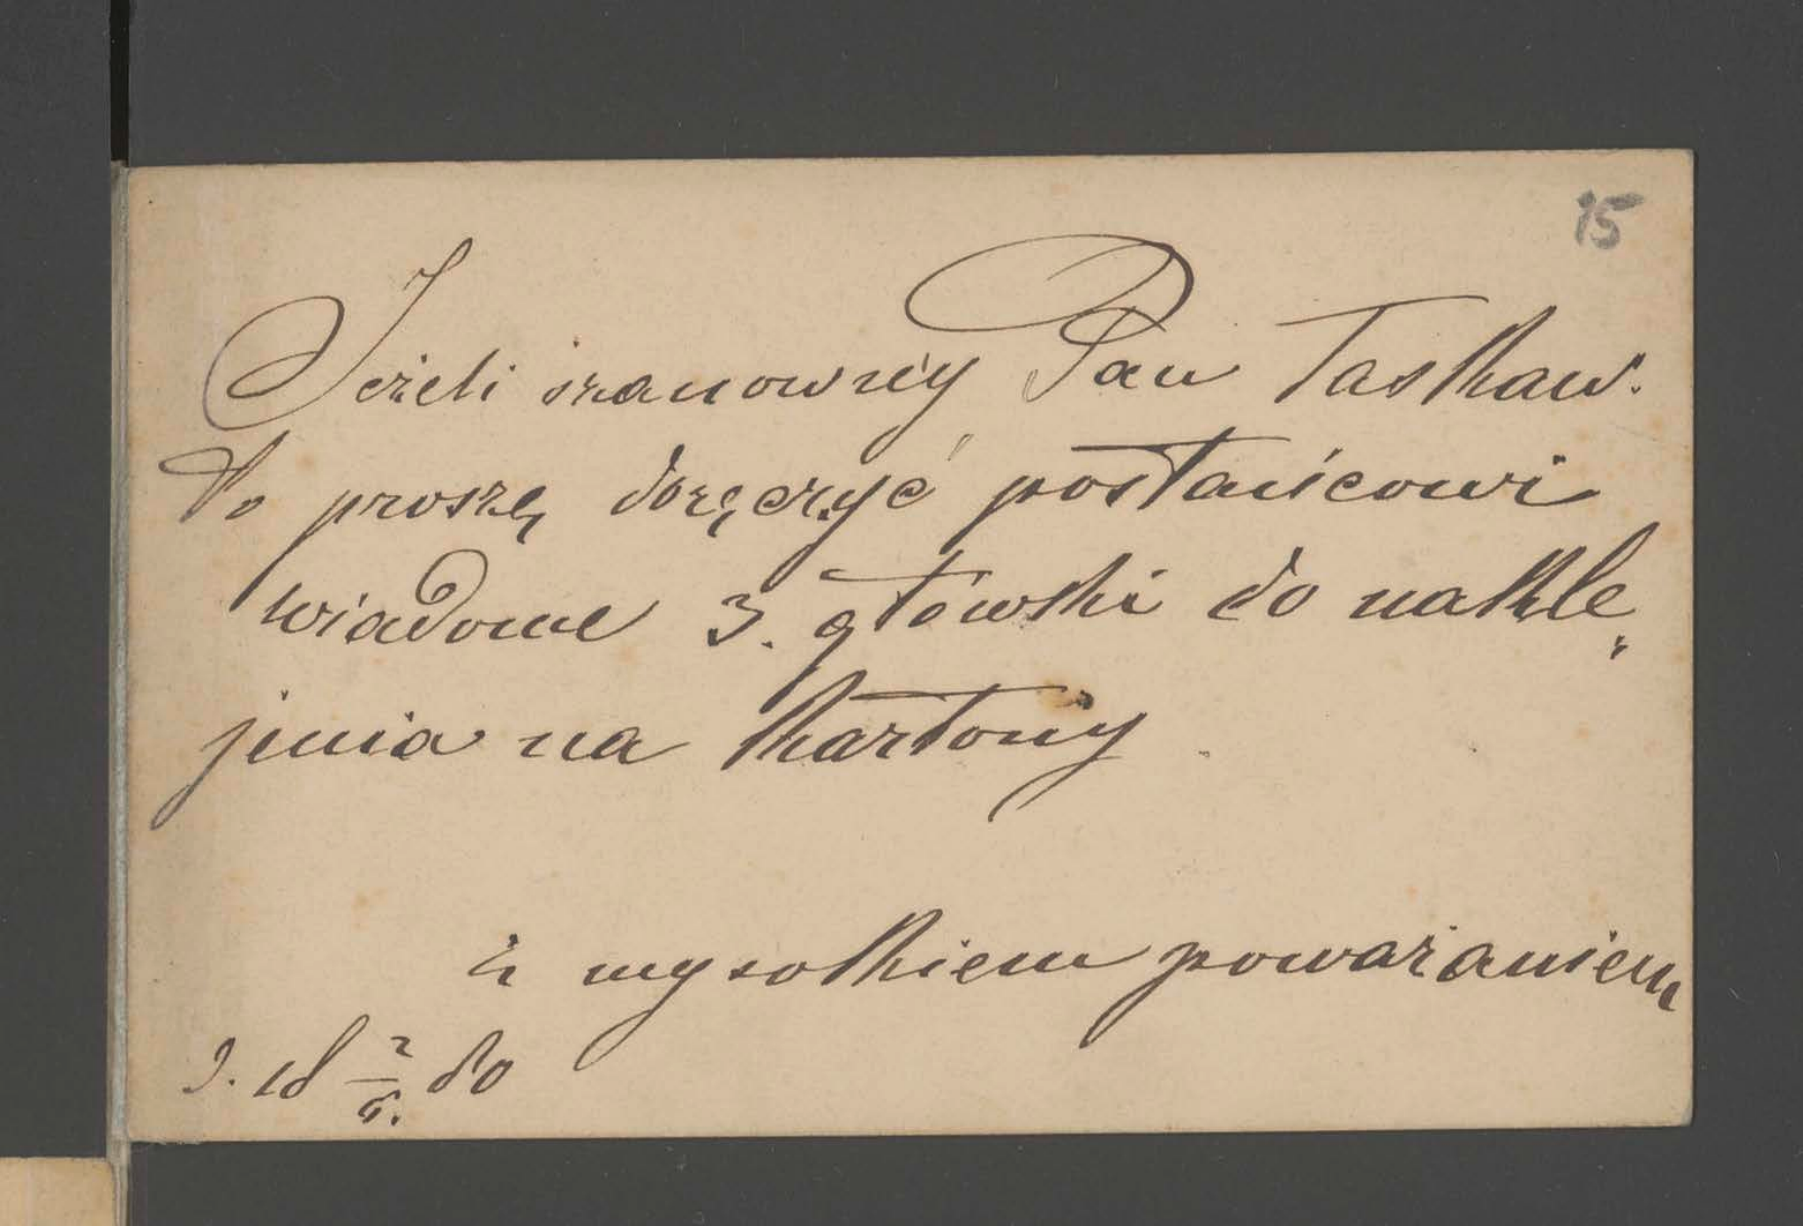 15
Jeżeli szanowny Pan łaskaw.
to proszę doręczyć posłańcowi
wiadome 3. główki do nakle„
jenia na kartony
z wysokiem poważaniem
d. 18 2/6. 80